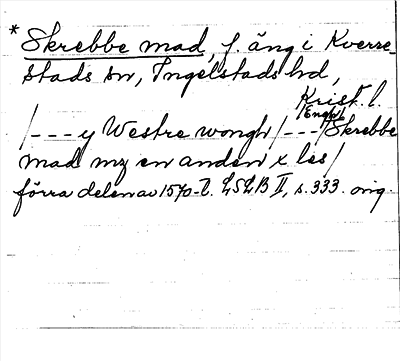 * Skrebbe mad, f. äng i Kverre-
stads sn, Ingelstads hd,
Krist. l.
/--- y Westre wongh /--- / Engh / Skrebbe
mad mz en anden x les/
förra delen av 1570-t. LSLB II, s. 333. orig.